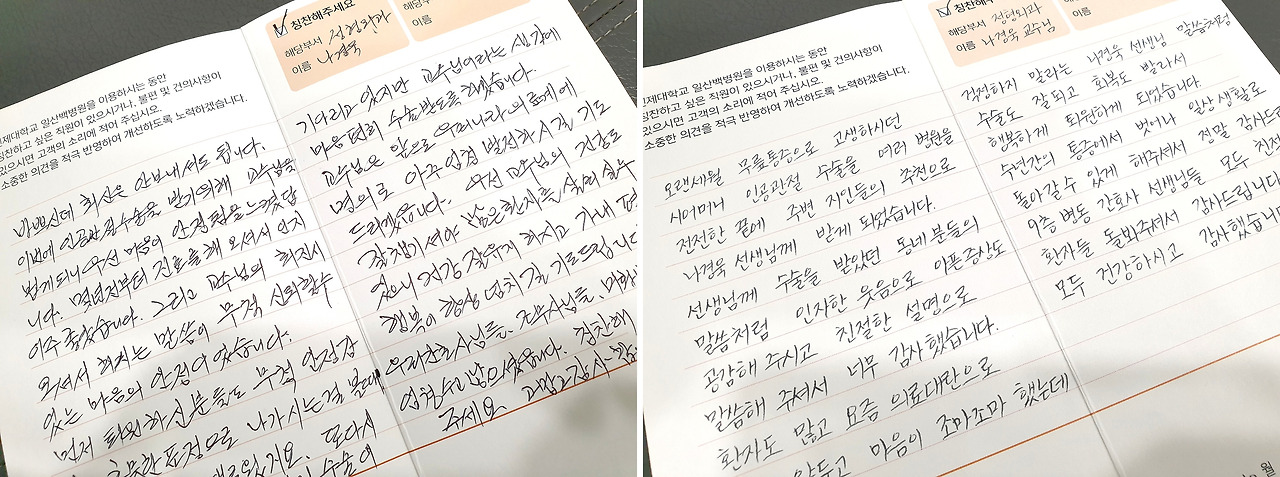 칭찬해주세요
해당부서 정형외과
이름 나경욱
해당부
이름
인제대학교 일산백병원을 이용하시는 동안
칭찬하고 싶은 직원이 있으시거나, 불편 및 건의사항이
있으시면 고객의 소리에 적어 주십시오.
소중한 의견을 적극 반영하여 개선하도록 노력하겠습니다.
바쁘신데 회신은 안보내셔도 됩니다.
이번에 인공관절수술을 받기위해 교수님을
뵙게되니 우선 마음이 안정됨을 느꼈답
니다. 몇년전부터 진료를 해 오셔서 인지
아주 좋았습니다. 그리고 교수님의 회진시
오셔서 하시는 말씀이 무척 신뢰할수
있는 마음의 안정이 있었습니다.
먼저 퇴원하신분들도 무척 안정감
표정으로 나가시는걸 볼때
또다시
수술이
기다리고 있지만 교수님이라는 생각에
마음편히 수술받도록 하겠습니다.
교수님은 앞으로 우리나라 의료계에
명의로 아주 엄청 발전하시길 기도
드리겠습니다. 우선 교수님의 건강도
잘챙기셔야 많은환자를
있으니 건강 잘유지 하시고 가내
행복이 항상 넘치길 기도드립니다
간호사님들,
칭찬해
주세요 고맙고 감사
칭찬해주세요
해당부서 정형외과
이름 나경욱 교수님
해당부
이름
인제대학교 일산백병원을 이용하시는 동안
칭찬하고 싶은 직원이 있으시거나, 불편 및 건의사항이
있으시면 고객의 소리에 적어 주십시오.
소중한 의견을 적극 반영하여 개선하도록 노력하겠습니다.
오랜세월 무릎통증으로 고생하시던
시어머니 인공관절 수술을 여러 병원을
전전한 끝에 주변 지인들의 추천으로
나경욱 선생님께 받게 되었습니다.
선생님께 수술을 받았던 동네 분들의
말씀처럼 인자한 웃음으로 아픈증상도
공감해 주시고 친절한 설명으로
말씀해 주셔서 너무 감사했습니다.
환자도 많고 요즘 의료대란으로
앞두고 마음이 조마조마 했는데
걱정하지 말라는 나경욱 선생님 말씀처럼
수술도 잘 되고 회복도 빨라서
행복하게 퇴원하게 되었습니다.
수년간의 통증에서 벗어나 일상생활로
돌아갈 수 있게 해주셔서 정말 감사드
9층 병동 간호사 선생님들 모두 친절
환자들 돌봐주셔서 감사드립니다
모두 건강하시고 감사했습니
월